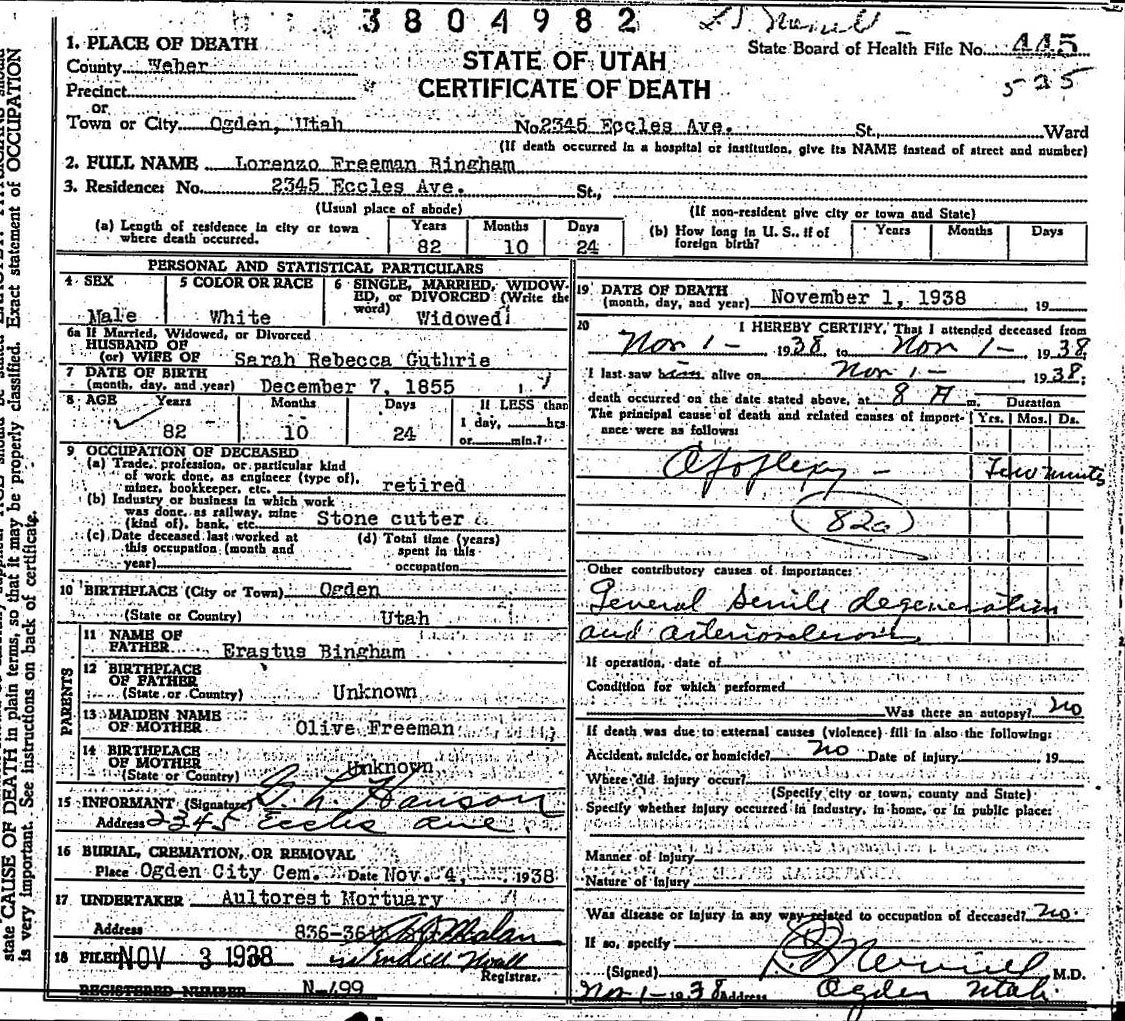 3804982
L S Merrill
1. PLACE OF DEATH
State Board of Health File No. 445
County Weber
STATE OF UTAH
535
Precinct
CERTIFICATE OF DEATH
or
Town or City Ogden, Utah No. 2345 Eccles Ave. St., Ward
(If death occurred in a hospital or institution, give its NAME instead of street and number)
2. FULL NAME Lorenzo Freeman Bingham
3. Residence: No. 2345 Eccles Ave. St.,
(Usual place of abode) (If non-resident give city or town and State)
(a) Length of residence in city or town where death occurred. Years 82 Months 10 Days 24
(b) How long in U. S., if of foreign birth? Years Months Days
PERSONAL AND STATISTICAL PARTICULARS
4 SEX Male
5 COLOR OR RACE White
6 SINGLE, MARRIED, WIDOWED, or DIVORCED (Write the word) Widowed
6a If Married, Widowed, or Divorced
HUSBAND OF
(or) WIFE OF Sarah Rebecca Guthrie
7 DATE OF BIRTH
(month, day, and year) December 7, 1855
8 AGE Years Months Days If LESS than
82 10 24 1 day, hrs
or min.?
9 OCCUPATION OF DECEASED
(a) Trade, profession, or particular kind
of work done, as engineer (type of),
miner, bookkeeper, etc. retired
(b) Industry or business in which work
was done, as railway, mine
(kind of), bank, etc. Stone cutter
(c) Date deceased last worked at
this occupation (month and
year)
(d) Total time (years)
spent in this
occupation
10 BIRTHPLACE (City or Town) Ogden
(State or Country) Utah
PARENTS
11 NAME OF
FATHER Erastus Bingham
12 BIRTHPLACE
OF FATHER
(State or Country) Unknown
13 MAIDEN NAME
OF MOTHER Olive Freeman
14 BIRTHPLACE
OF MOTHER
(State or Country) Unknown
15 INFORMANT (Signature) Hanson
Address 2345 Eccles Ave.
16 BURIAL, CREMATION, OR REMOVAL
Place Ogden City Cem. Date Nov. 4, 1938
17 UNDERTAKER Aultorest Mortuary
Address 836-36th Malan
18 FILED NOV 3 1938
Registrar.
REGISTERED NUMBER N-499
19 DATE OF DEATH
(month, day, and year) November 1, 1938 19
20 I HEREBY CERTIFY, That I attended deceased from
Nov 1 - 1938 to Nov 1 - 1938
I last saw him alive on Nov 1 - 1938;
death occurred on the date stated above, at 8 A m. Duration
The principal cause of death and related causes of importance were as follows: Yrs. Mos. Ds.
Apoplexy - Few minuts
82a
Other contributory causes of importance:
General senile degeneration
and arteriosclerosis
If operation, date of
Condition for which performed
Was there an autopsy? no
If death was due to external causes (violence) fill in also the following:
Accident, suicide, or homicide? no Date of injury 19
Where did injury occur?
(Specify city or town, county and State)
Specify whether injury occurred in industry, in home, or in public place:
Manner of Injury
Nature of Injury
Was disease or injury in any way related to occupation of deceased? no.
If so, specify
(Signed) L S Merrill M.D.
Nov 1 - 1938 Address Ogden Utah.
state CAUSE OF DEATH in plain terms, so that it may be properly classified. Exact statement of OCCUPATION
is very important. See instructions on back of certificate.